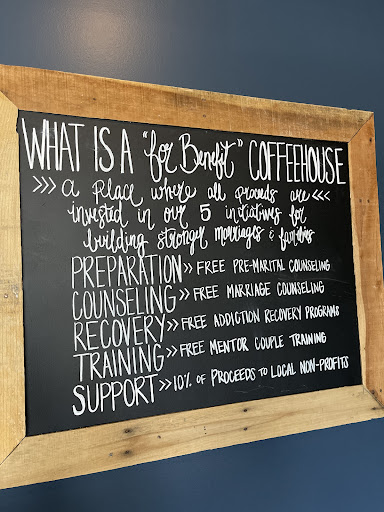 WHAT IS A "for Benefit" COFFEEHOUSE
>>> a place where all proceeds are <<<
invested in our 5 initiatives for
building stronger marriages & families
PREPARATION >> FREE PRE-MARITAL COUNSELING
COUNSELING >> FREE MARRIAGE COUNSELING
RECOVERY >> FREE ADDICTION RECOVERY PROGRAMS
TRAINING >> FREE MENTOR COUPLE TRAINING
SUPPORT >> 10% OF PROCEEDS TO LOCAL NON-PROFITS